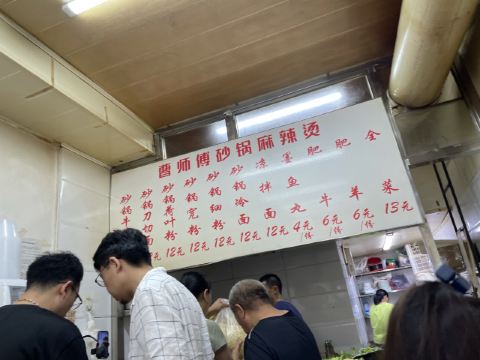 曹师傅砂锅麻辣烫
砂锅
元
砂锅刀切面 12元
砂锅荷叶粉 12元
砂锅宽粉 12元
砂锅细粉 12元
砂锅冷面 12元
凉拌面 12元
墨鱼丸 4元/份
肥牛 6元/份
肥羊 6元/份
全菜 13元